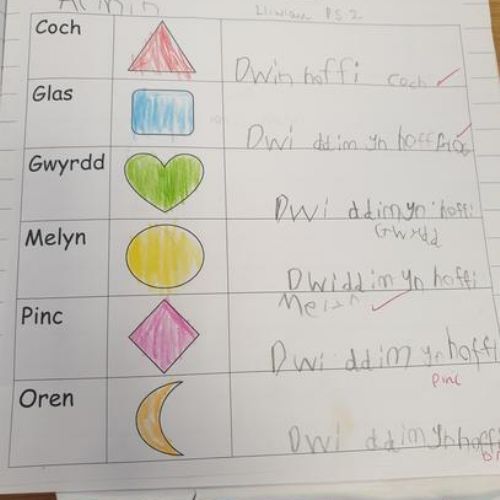 Lliwiau
Coch
Dwin hoffi coch
Glas
Dwi ddim yn hoffi
Gwyrdd
Dwi ddim yn hoffi
Gwrdd
Melyn
Dwi ddim yn hoffi
Pinc
Dwi ddim yn hoffi
Pinc
Oren
Dwi ddim yn hoffi